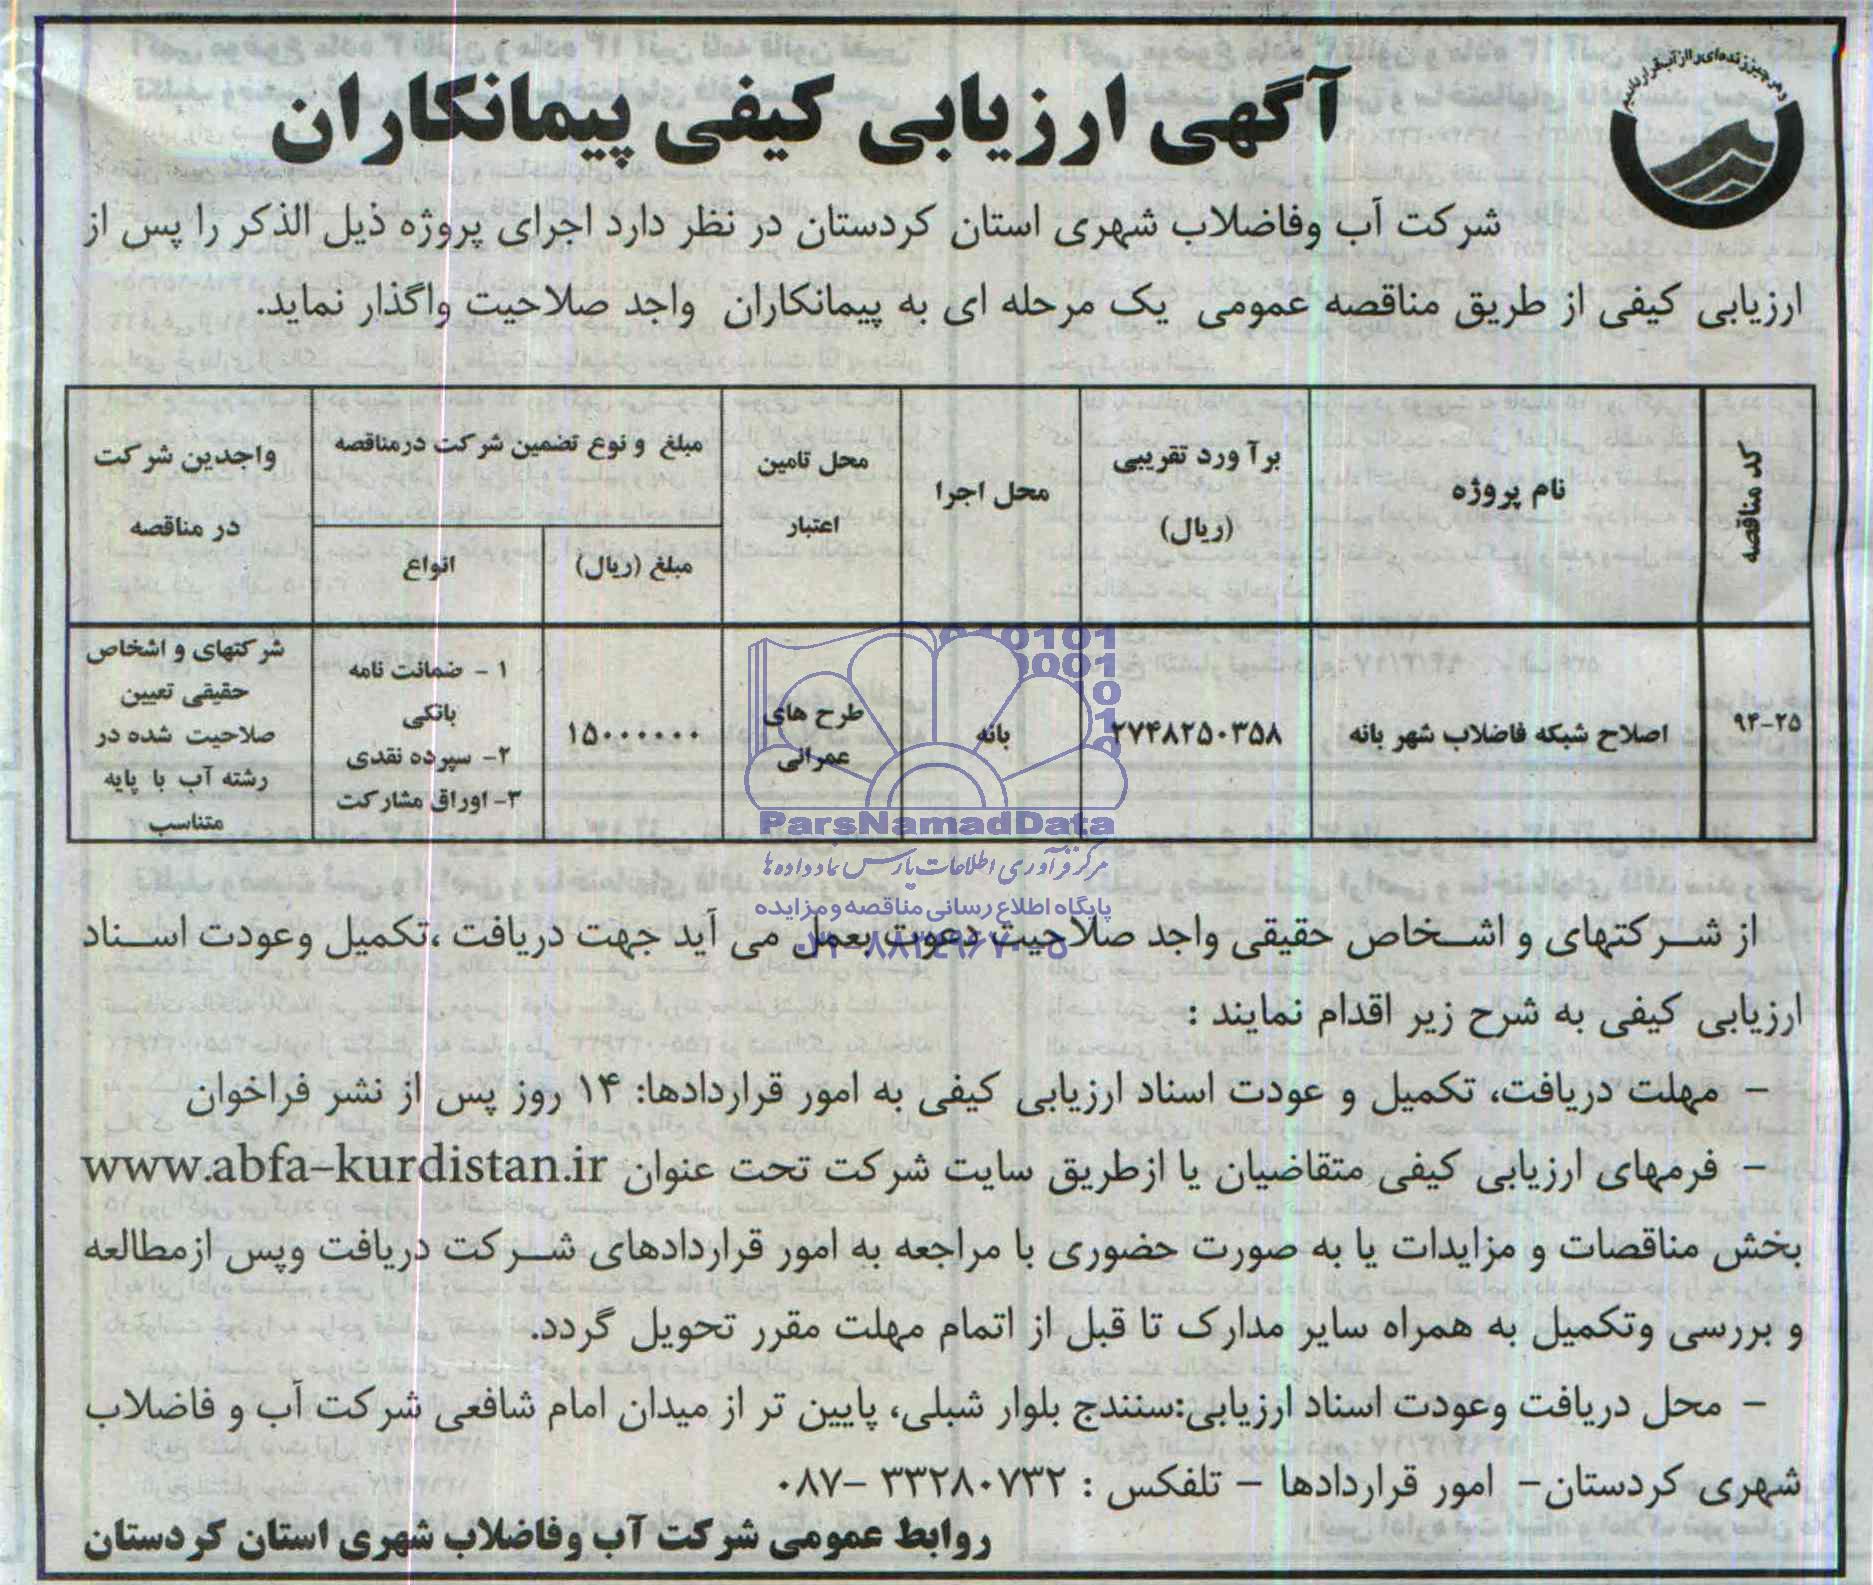 و هر چیز زنده‌ای را از آب قرار دادیم
آگهی ارزیابی کیفی پیمانکاران
شرکت آب وفاضلاب شهری استان کردستان در نظر دارد اجرای پروژه ذیل الذکر را پس از
ارزیابی کیفی از طریق مناقصه عمومی یک مرحله ای به پیمانکاران واجد صلاحیت واگذار نماید.
کد مناقصه
نام پروژه
برآ ورد تقریبی
(ریال)
محل اجرا
محل تامین
اعتبار
مبلغ و نوع تضمین شرکت درمناقصه
مبلغ (ریال)
انواع
واجدین شرکت
در مناقصه
۹۴-۲۵
اصلاح شبکه فاضلاب شهر بانه
۲۷۴۸۲۵۰۳۵۸
بانه
طرح های
عمرانی
۱۵۰۰۰۰۰۰۰
۱ - ضمانت نامه
بانکی
۲- سپرده نقدی
۳- اوراق مشارکت
شرکتهای و اشخاص
حقیقی تعیین
صلاحیت شده در
رشته آب با پایه
متناسب
ParsNamadData
مرکز فرآوری اطلاعات پارس نماد داده ها
پایگاه اطلاع رسانی مناقصه و مزایده
۰۲۱-۸۸۳۴۹۶۷۰-۵
از شرکتهای و اشخاص حقیقی واجد صلاحیت دعوت بعمل می آید جهت دریافت ،تکمیل وعودت اسناد
ارزیابی کیفی به شرح زیر اقدام نمایند :
- مهلت دریافت، تکمیل و عودت اسناد ارزیابی کیفی به امور قراردادها: ۱۴ روز پس از نشر فراخوان
- فرمهای ارزیابی کیفی متقاضیان یا ازطریق سایت شرکت تحت عنوان www.abfa-kurdistan.ir
بخش مناقصات و مزایدات یا به صورت حضوری با مراجعه به امور قراردادهای شرکت دریافت وپس ازمطالعه
و بررسی وتکمیل به همراه سایر مدارک تا قبل از اتمام مهلت مقرر تحویل گردد.
- محل دریافت وعودت اسناد ارزیابی:سنندج بلوار شبلی، پایین تر از میدان امام شافعی شرکت آب و فاضلاب
شهری کردستان- امور قراردادها - تلفکس : ۳۳۲۸۰۷۳۲ -۰۸۷
روابط عمومی شرکت آب وفاضلاب شهری استان کردستان